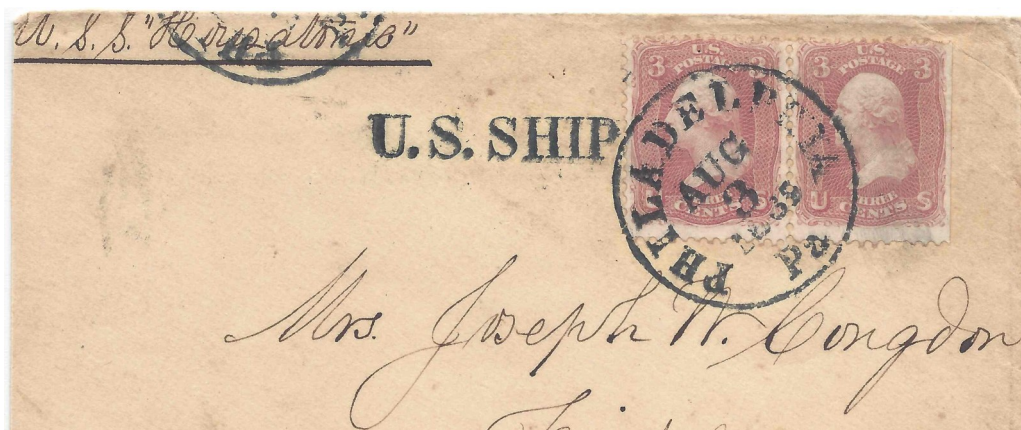 U. S. S. "Housatonic"
Pa
U.S. SHIP
3 U.S. POSTAGE 3
THREE CENTS U S
3 U.S. POSTAGE 3
U THREE CENTS S
PHILADELPHIA Pa
AUG
3
Mrs. Joseph W. Congdon